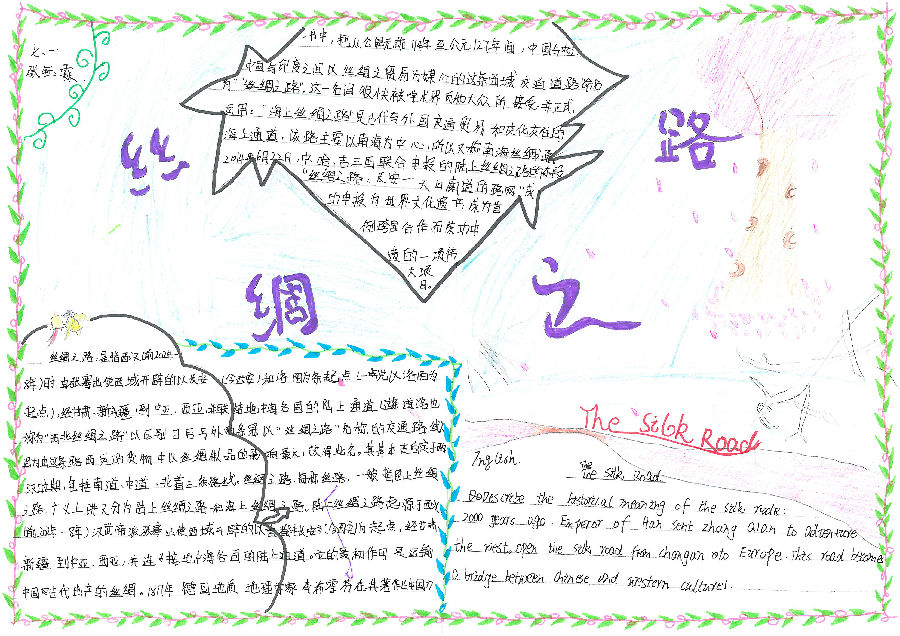 七、一
丝
绸
之
路
书中,把从公元前114年至公元127年间,中国与
中国与印度之间以丝绸之贸易为媒介的这条西域交通道路命名
为"丝绸之路",这一名词很快被学术界和大众所接受,并正式
运用。"海上丝绸之路"是古代与外国交通贸易和文化交往的
海上通道,该路主要以南海为中心,所以又称南海丝绸之路
2014年6月22日,中、哈、吉三国联合申报的陆上丝绸之路的东段
"丝绸之路:长安一天山廊道的路网"成
功申报为世界文化遗产,成为首
例跨国合作而成功申
遗的一项伟
大项
目。
丝绸之路,是指西汉(前202年-
8年)时,由张骞出使西域开辟的以长安(今西安)和洛阳为东起点(一说以洛阳为
起点),经甘肃、新疆,到中亚、西亚,并联结地中海各国的陆上通道(这条道路也
称为"西北丝绸之路"以区别日后另外两条冠以"丝绸之路"名称的交通路线
因为由这条路西运的货物中以丝绸制品的影响最大,故得此名。其基本走向定于两
汉时期,包括南道、中道、北道三条路线。丝绸之路
路,广义上讲又分为陆上丝绸之路和海上丝绸之路。陆上丝绸之路起源于西汉
新疆,到中亚、西亚,并连接地中海各国的陆上通道,它的最初作用是运输
中国古代出产的丝绸。1877年,德国地质地理学家李希霍芬在其著作《中国》
The Silok Road
Inglish.
The silk road.
Describe the historial meaning of the silk rode:
2000 years ago. Emperor of Han sent zhang Qian to adventure
the west, open the silk road from changan oto Europe. this road became
a bridge between chinese and western cultures.